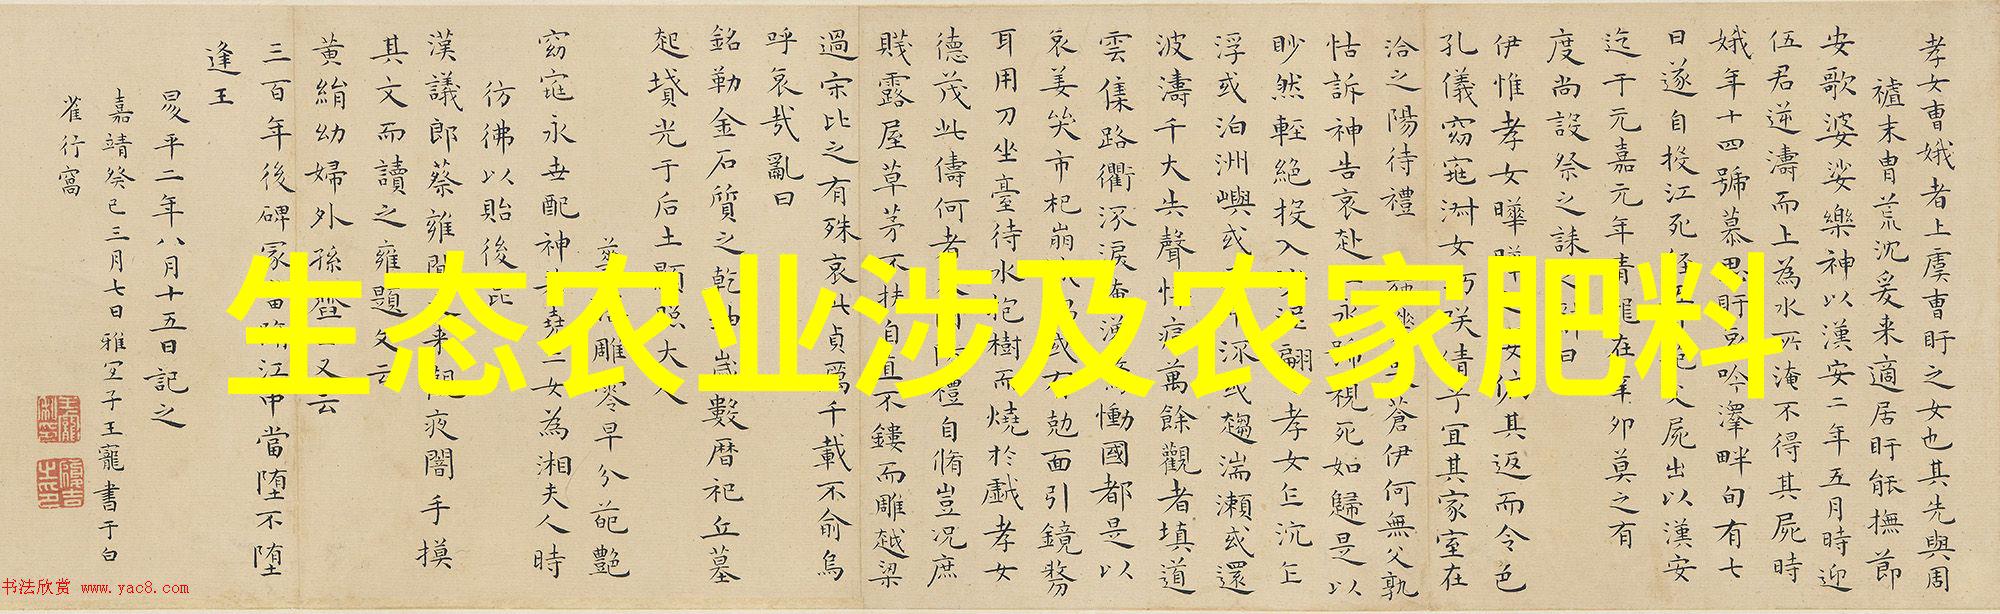 孝女曹娥者上虞曹盱之女也其先與周
禧末胄荒沈爰来適居盱能撫節
安歌婆娑樂神以漢安二年五月時迎
伍君逆濤而上為水所淹不得其屍時
娥年十四號慕思盱哀吟澤畔旬有七
日遂自投江死經五日抱父屍出以漢安
迄于元嘉元年青龍在辛卯莫之有
度尚設祭之誄之辭曰
伊惟孝女曄曄之女偏其返而令色
孔儀窈窕淑女巧笑倩兮宜其家室在
洽之陽待禮蒼伊何無父孰
怙訴神告哀赴江永號視死如歸是以
眇然輕絕投入沙泥翩孝女乍沉乍
浮或泊洲嶼或中流或趨湍瀬或還
波濤千夫失聲悼痛萬餘觀者填道
雲集路衢流淚掩涕驚慟國都是以
哀姜哭市杞崩城隅或有剋面引鏡剺
耳用刀坐臺待水抱樹而燒於戲孝女
德茂此儔何者大國防禮自脩豈況庶
賤露屋草茅不扶自直不鏤而雕越梁
過宋比之有殊哀此貞厲千載不渝烏
呼哀哉亂曰
銘勒金石質之乾坤歲數曆祀丘墓
起墳光于后土顯照夫人
雕零早分葩艷
窈窕永世配神若堯二女為湘夫人時
彷彿以貽後昆
漢議郎蔡雍聞之来觀夜闇手摸
其文而讀之雍題文云
黃絹幼婦外孫齏臼又云
三百年後碑冢當墮江中當墮不墮
逢王
昇平二年八月十五日記之
嘉靖癸巳三月七日雅宜子王寵書于白
雀行窩
生态农业涉及农家肥料
书法欣赏 www.yac8.com